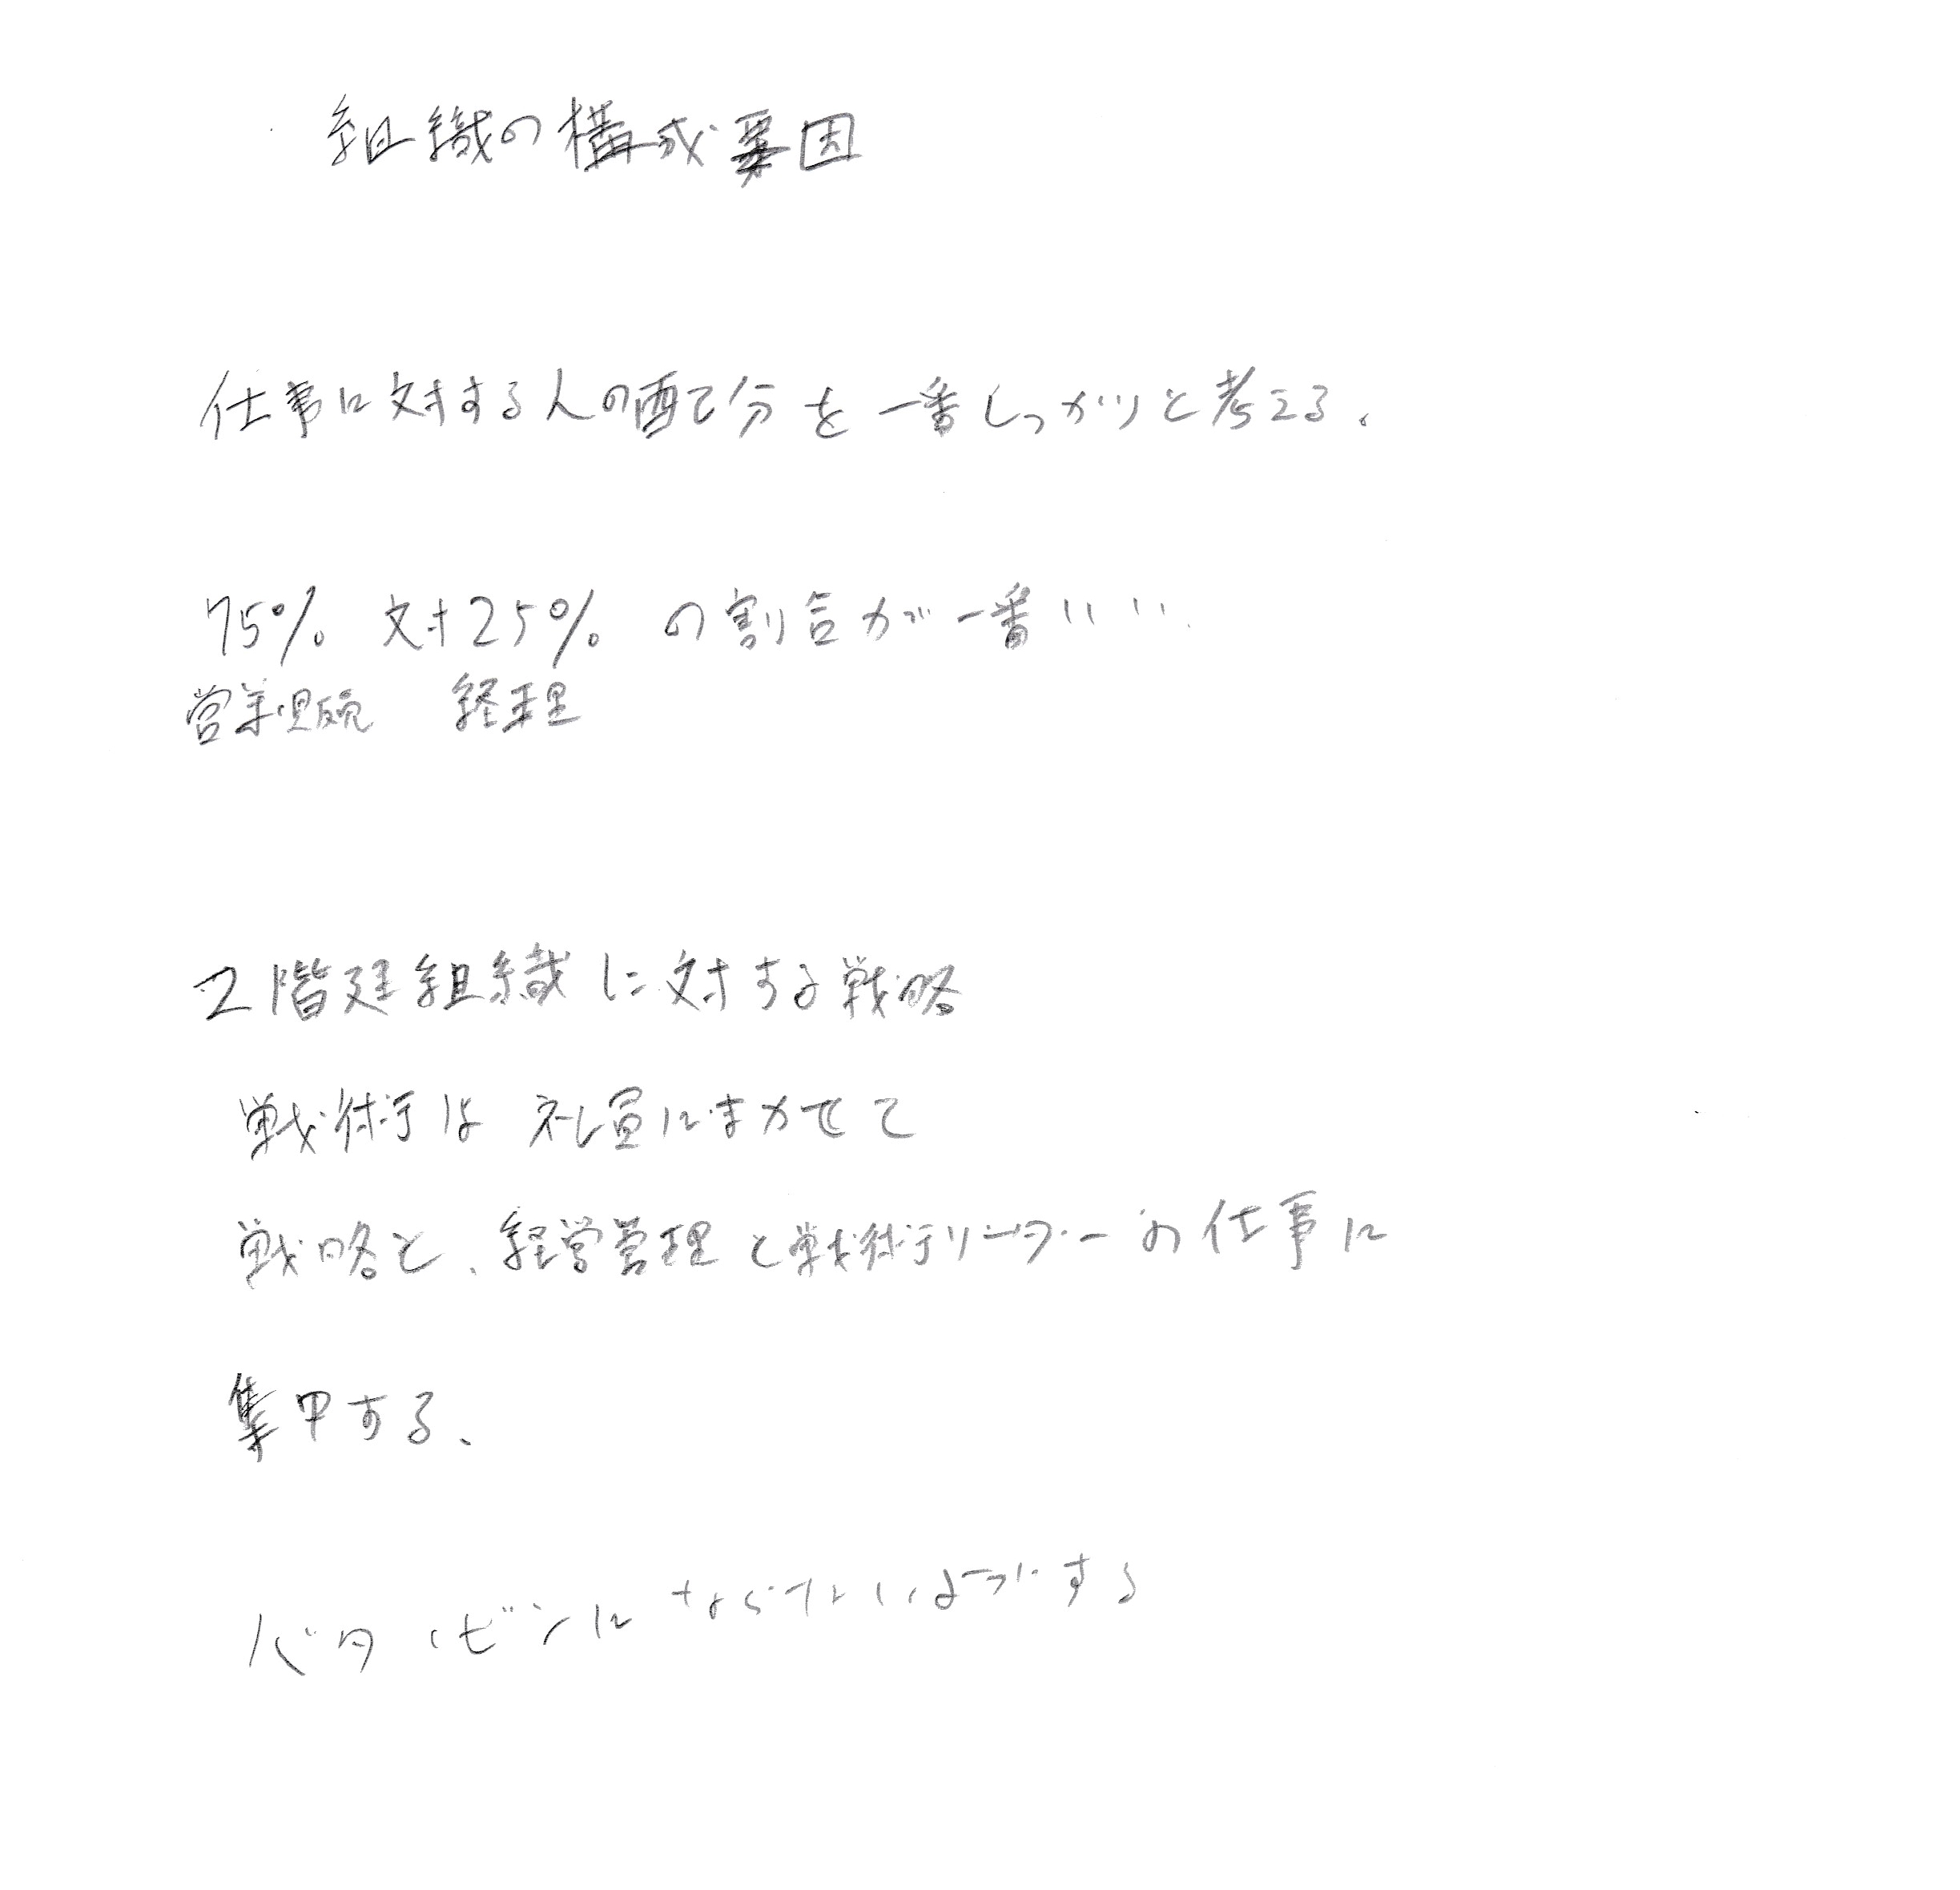 組織の構成要因
仕事に対する人の配分を一番しっかりと考える。
75% 対25% の割合が一番いい。
営業販売 経理
2階建組織に対する戦略
戦術は社員にまかせて
戦略と、経営管理と戦術リーダーの仕事に
集中する、
にならないようにする